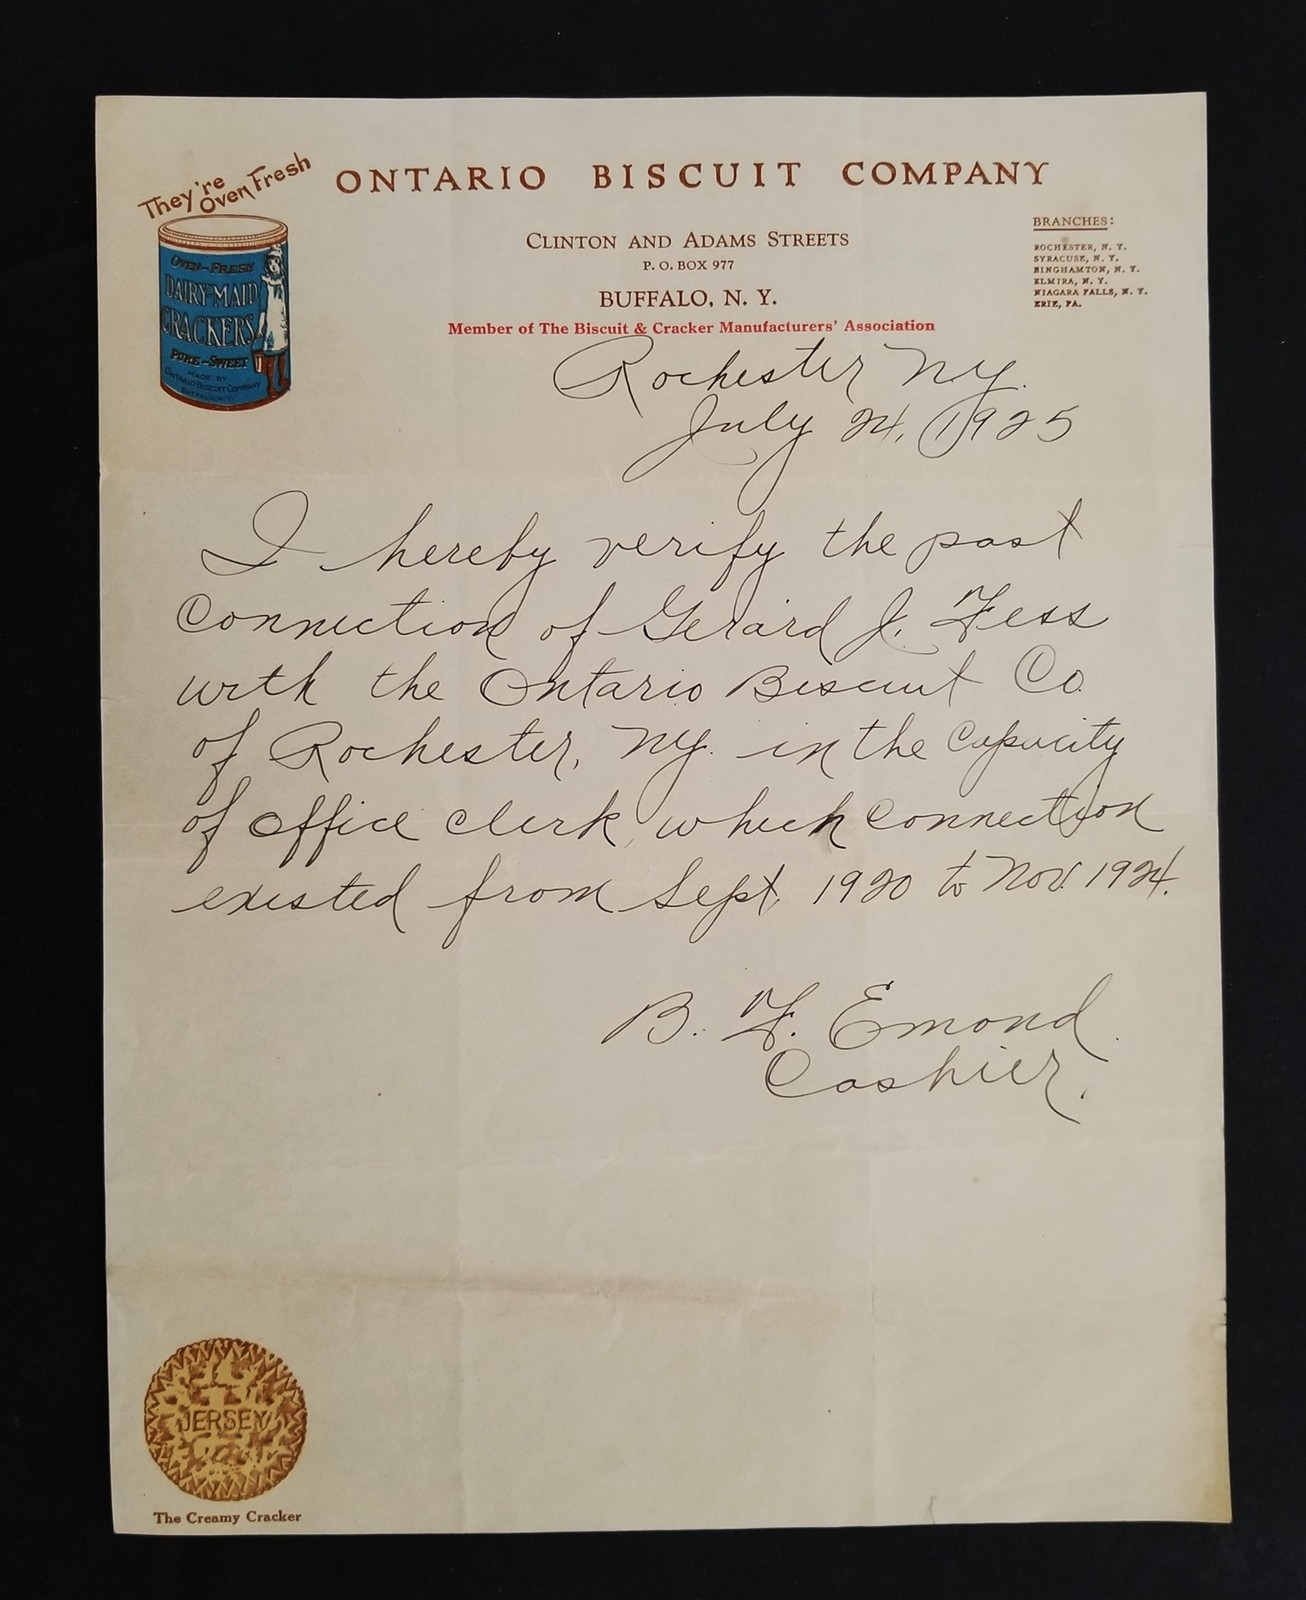 They're Oven Fresh
ONTARIO BISCUIT COMPANY
CLINTON AND ADAMS STREETS
P. O. BOX 977
BUFFALO, N. Y.
Member of The Biscuit & Cracker Manufacturers' Association
BRANCHES:
ROCHESTER, N. Y.
SYRACUSE, N. Y.
BINGHAMTON, N. Y.
ELMIRA, N. Y.
NIAGARA FALLS, N. Y.
ERIE, PA.
OVEN-FRESH
DAIRY-MAID
CRACKERS
PURE-SWEET
MADE BY
ONTARIO BISCUIT COMPANY
BUFFALO, N.Y.
Rochester N.Y.
July 24, 1925
I hereby verify the past
connection of Gerard J. Fess
with the Ontario Biscuit Co.
of Rochester, N.Y. in the capacity
of office clerk, which connection
existed from Sept. 1920 to Nov. 1924.
B. F. Emond.
Cashier.
JERSEY
The Creamy Cracker